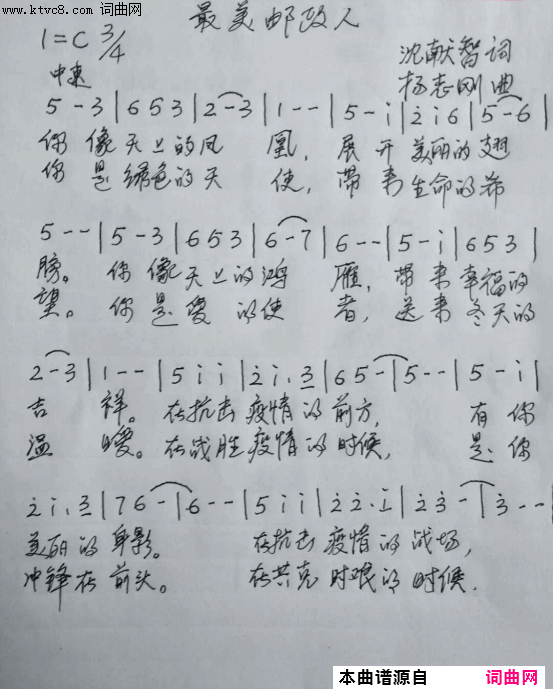 www.ktvc8.com 词曲网
最美邮政人
1=C 3/4
中速
沈献智词
杨志刚曲
5 - 3 | 6 5 3 | 2 - 3 | 1 - - | 5 - i | 2 i 6 | 5 - 6 |
你像天上的凤凰，展开美丽的翅
你是绿色的天使，带来生命的希
5 - - | 5 - 3 | 6 5 3 | 6 - 7 | 6 - - | 5 - i | 6 5 3 |
膀。你像天上的鸿雁，带来幸福的
望。你是爱的使者，送来冬天的
2 - 3 | 1 - - | 5 i i | 2 i. 3 | 6 5 - | 5 - - | 5 - i |
吉祥。在抗击疫情的前方，有你
温暖。在战胜疫情的时候，是你
2 i. 3 | 7 6 - | 6 - - | 5 i i | 2 2. i | 2 3 - | 3 - -
美丽的身影。在抗击疫情的战场，
冲锋在前头。在共克时艰的时候.
本曲谱源自 词曲网